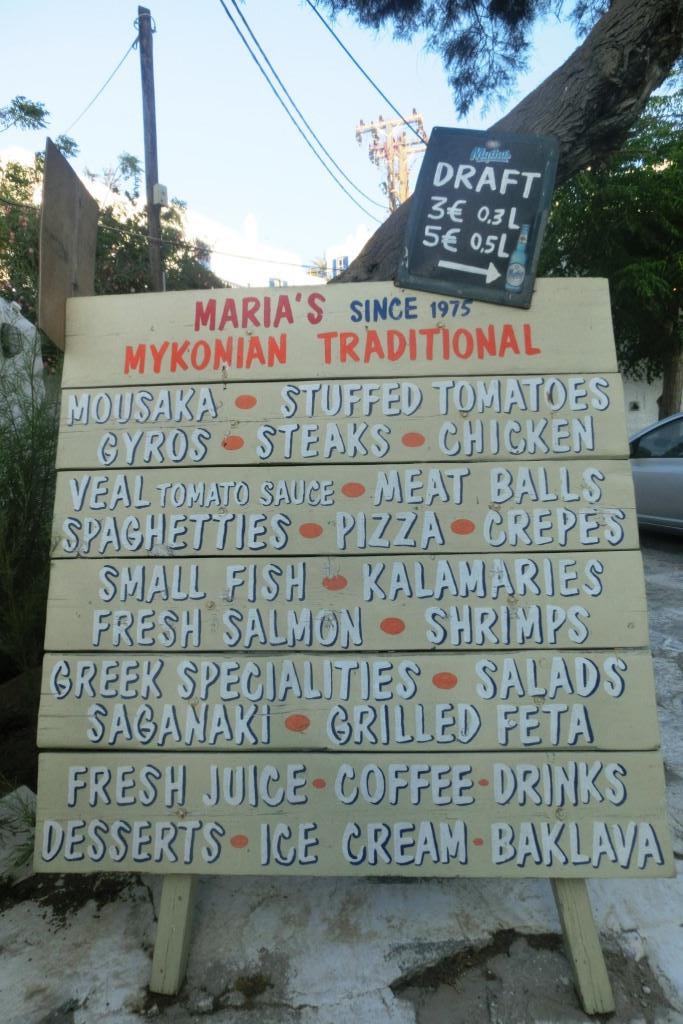 Mythos
DRAFT
3€ 0.3L
5€ 0.5L
MARIA'S SINCE 1975
MYKONIAN TRADITIONAL
MOUSAKA • STUFFED TOMATOES
GYROS • STEAKS • CHICKEN
VEAL TOMATO SAUCE • MEAT BALLS
SPAGHETTIES • PIZZA • CREPES
SMALL FISH • KALAMARIES
FRESH SALMON • SHRIMPS
GREEK SPECIALITIES • SALADS
SAGANAKI • GRILLED FETA
FRESH JUICE • COFFEE • DRINKS
DESSERTS • ICE CREAM • BAKLAVA